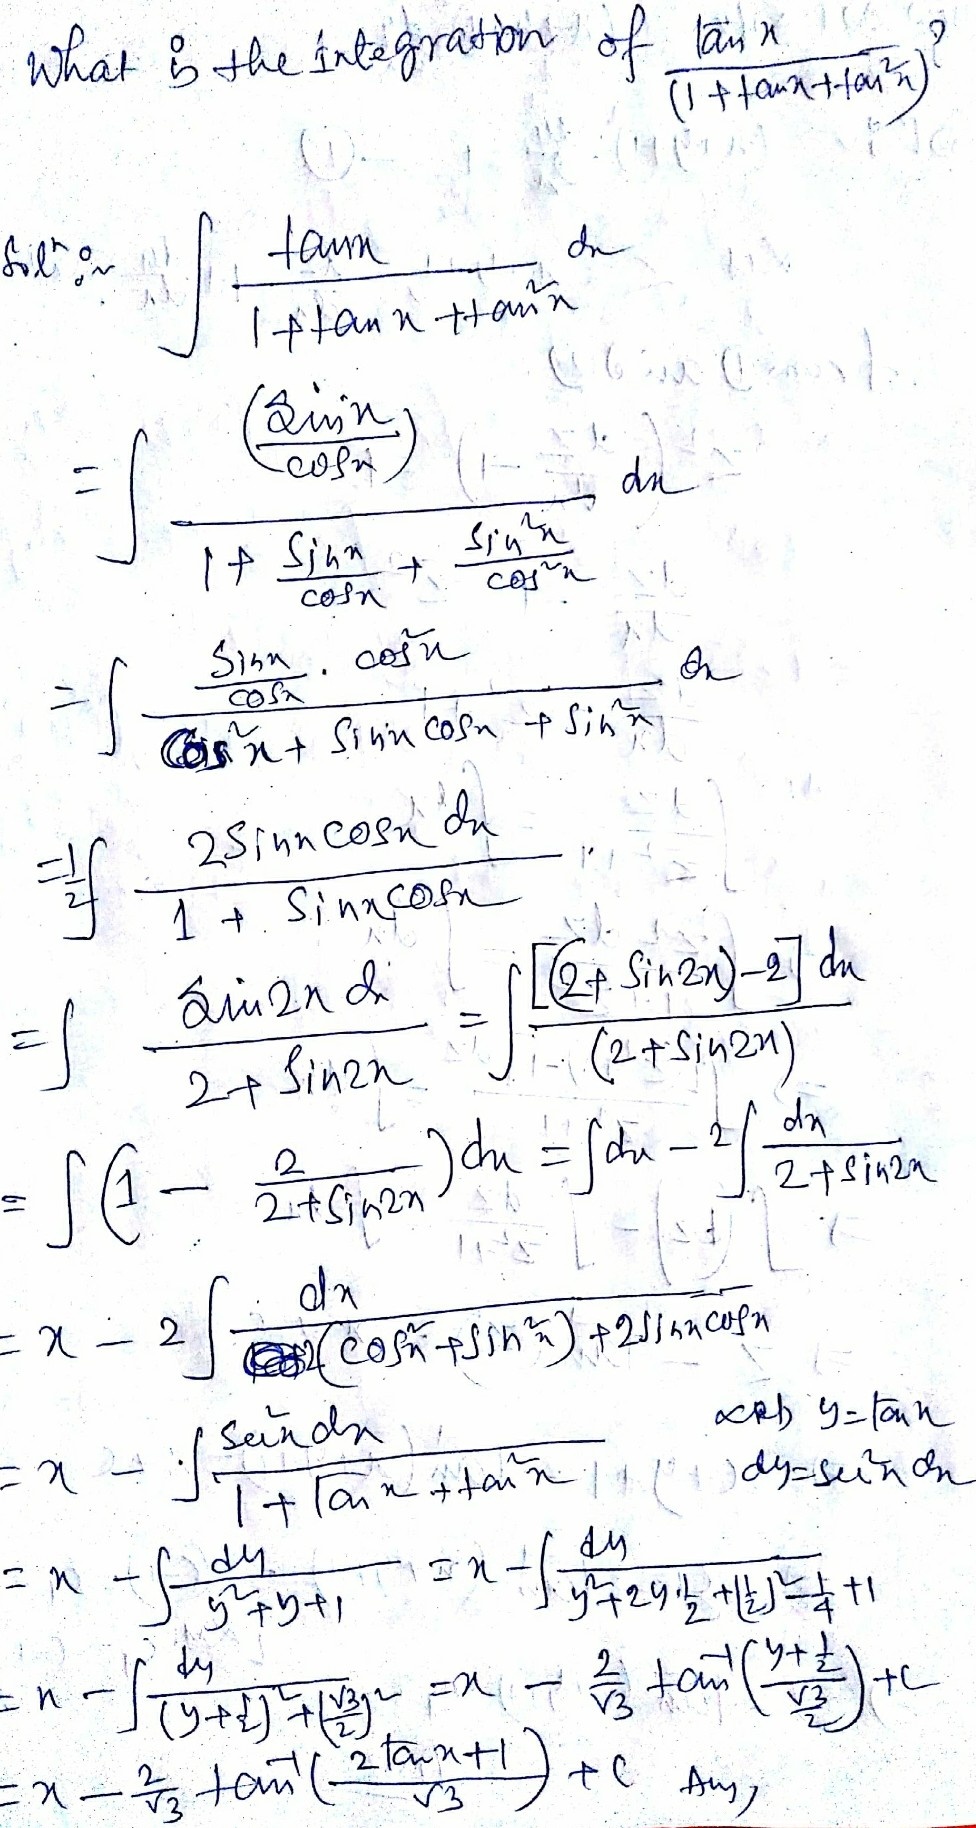 What is the integration of tan x / (1 + tan x + tan²x) ?
Solⁿ :~ ∫ tan x / (1 + tan x + tan²x) dx
= ∫ (sin x / cos x) / (1 + sin x / cos x + sin²x / cos²x) dx
= ∫ (sin x / cos x · cos²x) / (cos²x + sin x cos x + sin²x) dx
= 1/2 ∫ 2 sin x cos x dx / (1 + sin x cos x)
= ∫ sin 2x dx / (2 + sin 2x) = ∫ [(2 + sin 2x) - 2] dx / (2 + sin 2x)
= ∫ (1 - 2 / (2 + sin 2x)) dx = ∫ dx - 2 ∫ dx / (2 + sin 2x)
= x - 2 ∫ dx / (2(cos²x + sin²x) + 2 sin x cos x)
= x - ∫ sec²x dx / (1 + tan x + tan²x) y = tan x
dy = sec²x dx
= x - ∫ dy / (y² + y + 1) = x - ∫ dy / (y² + 2y·1/2 + (1/2)² - 1/4 + 1)
= x - ∫ dy / ((y + 1/2)² + (√3/2)²) = x - 2/√3 tan⁻¹((y + 1/2) / (√3/2)) + c
= x - 2/√3 tan⁻¹((2 tan x + 1) / √3) + C Ans,